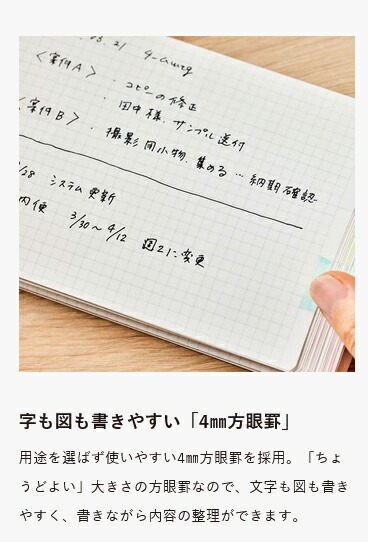 .03.21 チームmtg
〈案件A〉・コピーの修正
・田中様、サンプル送付
〈案件B〉・撮影用小物、集める…納期確認
/28 システム更新
内便 3/30～4/12 週2に変更
字も図も書きやすい「4㎜方眼罫」
用途を選ばず使いやすい4㎜方眼罫を採用。「ちょ
うどよい」大きさの方眼罫なので、文字も図も書き
やすく、書きながら内容の整理ができます。